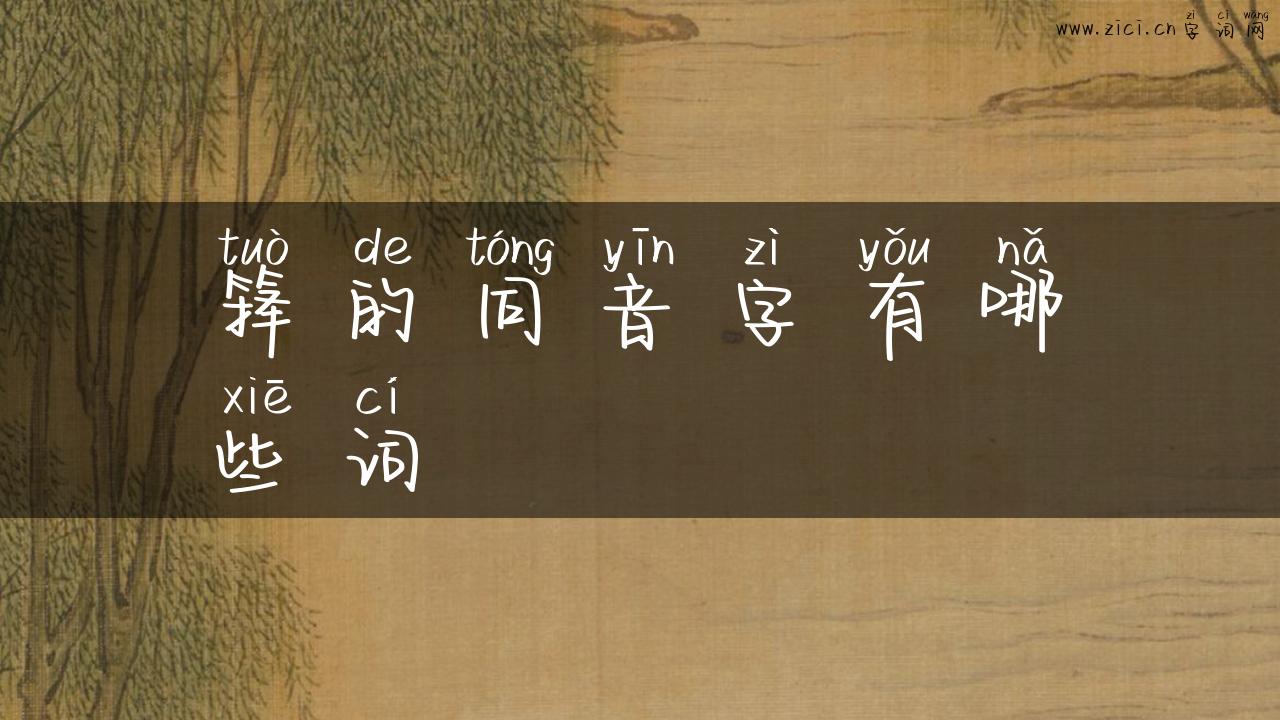 zì cí wǎng
www.zici.cn 字词网
tuò de tóng yīn zì yǒu nǎ
箨的同音字有哪
xiē cí
些词